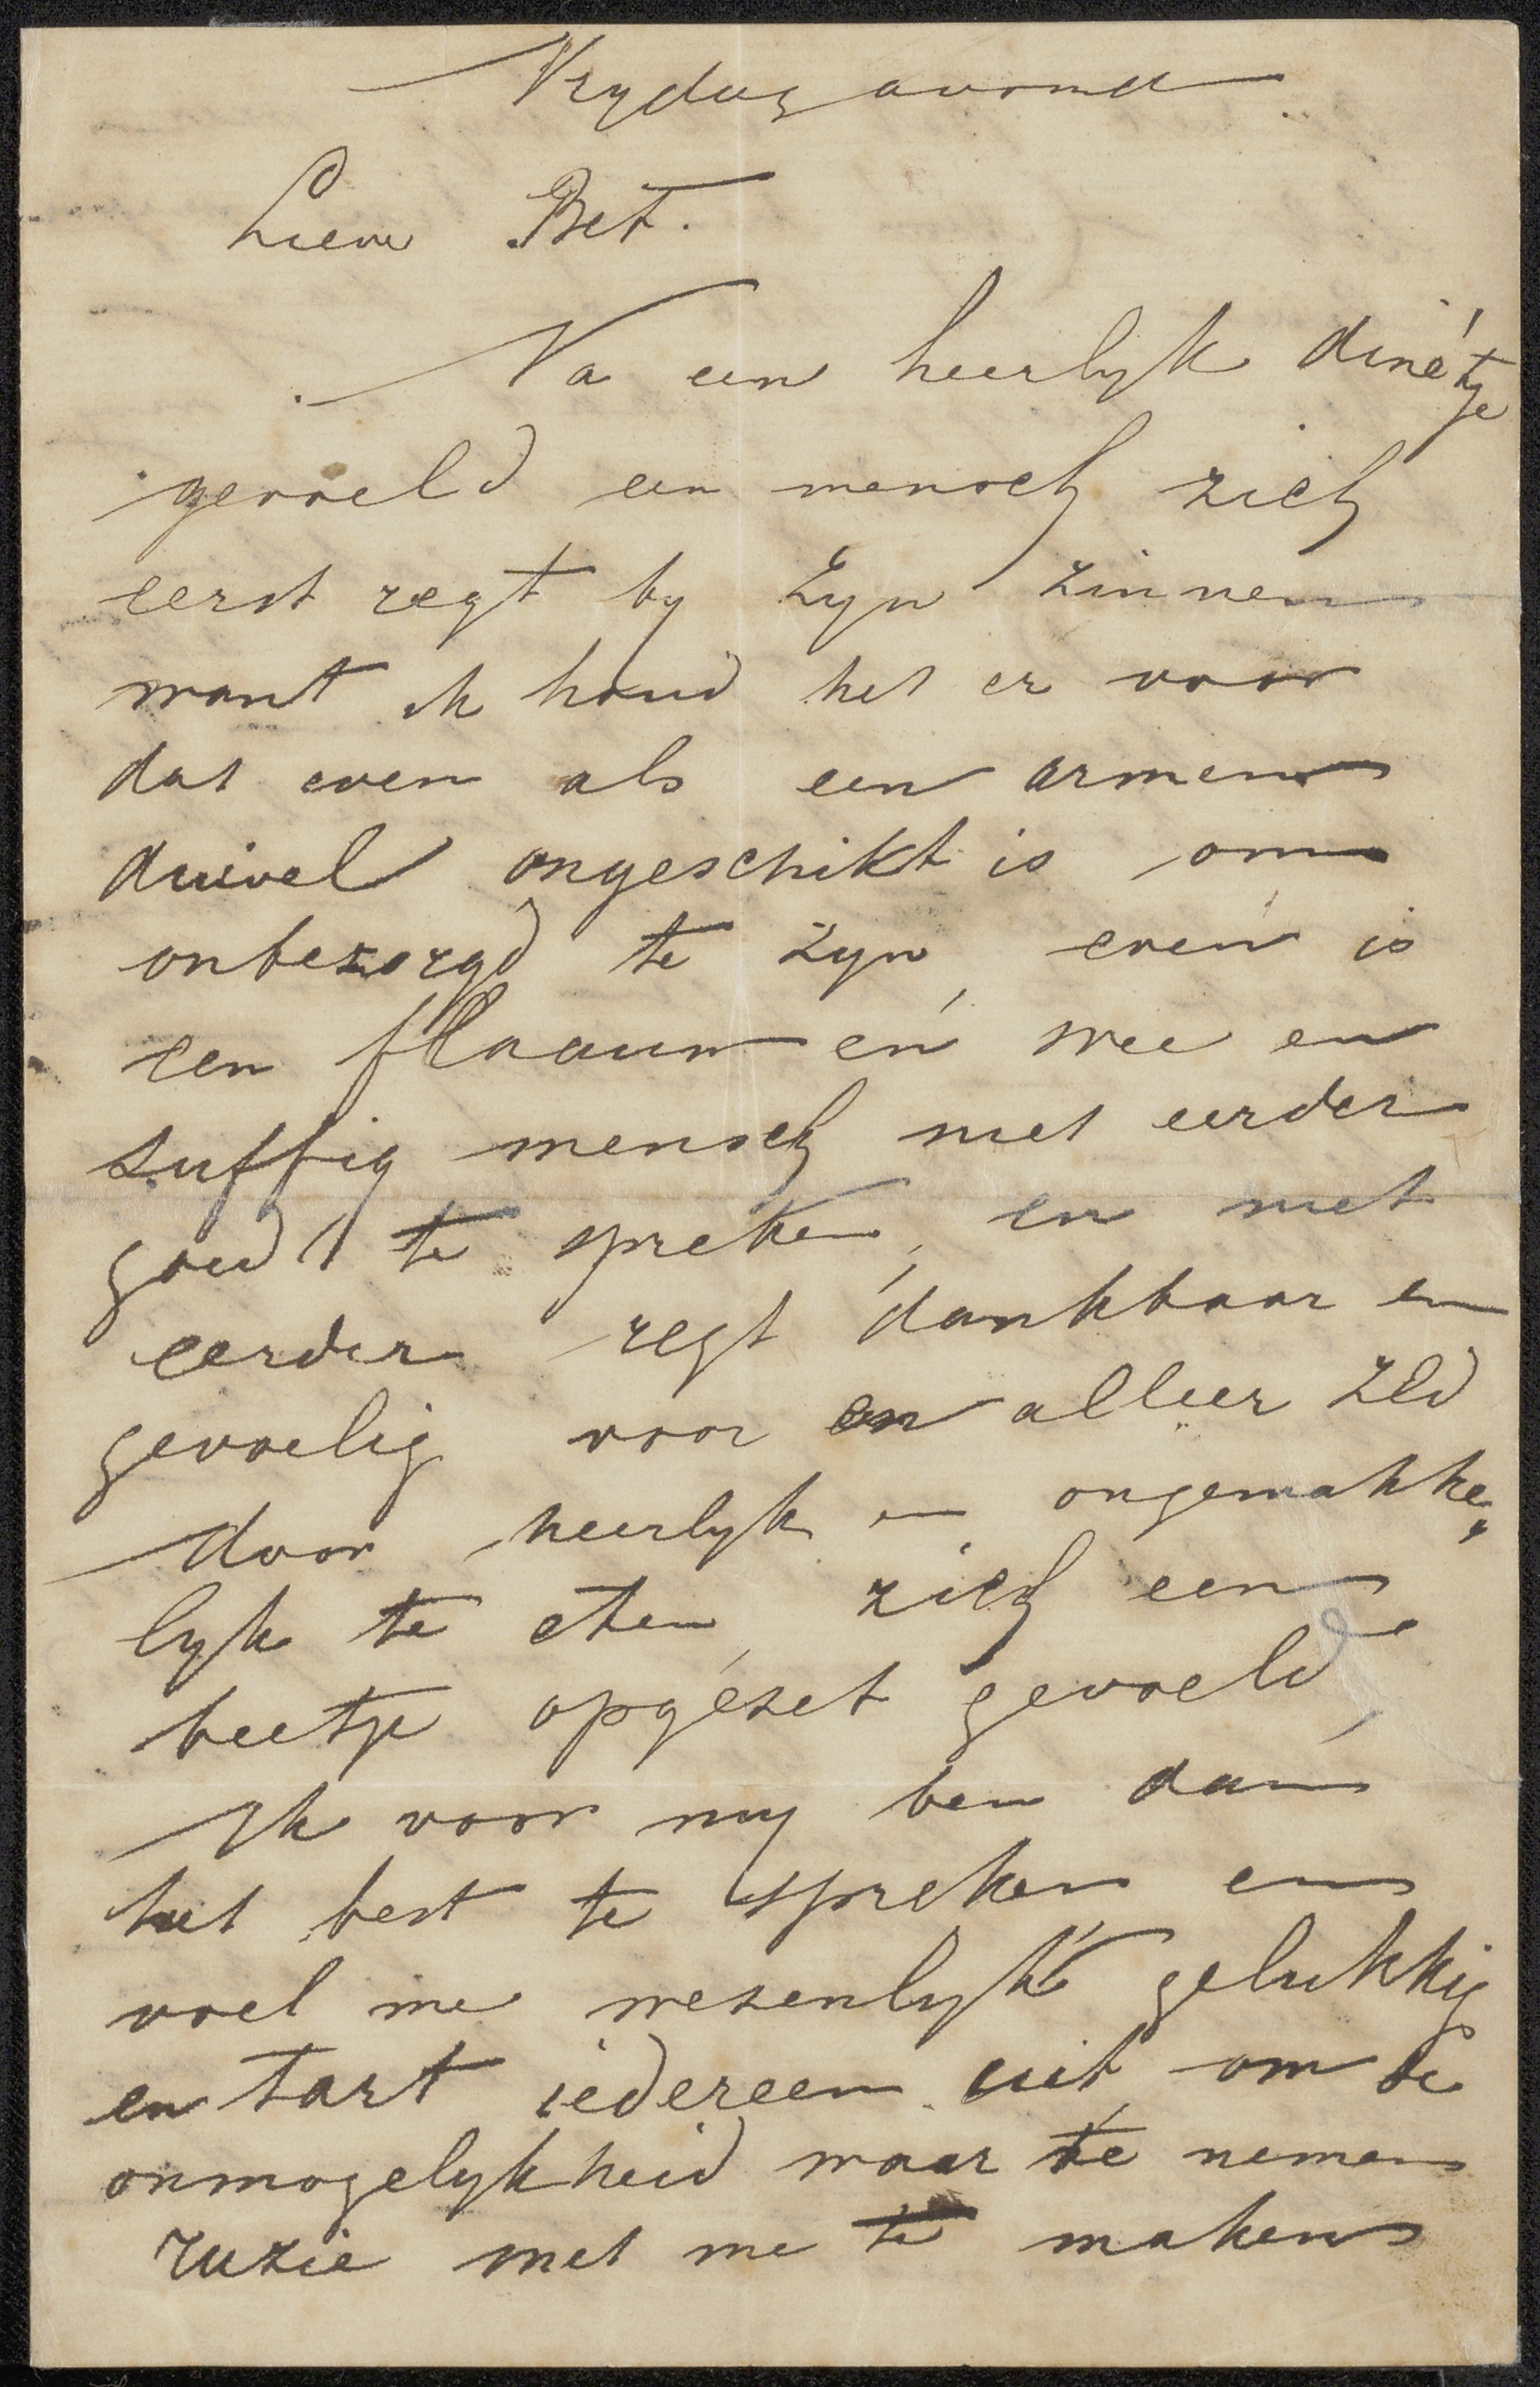 Vrydag avond
Lieve Bet.
Na een heerlyk diné'tje
gevoeld een mensch zich
eerst regt by zyn zinnen
want ik houd het er voor
dat even als een armen
duivel ongeschikt is om
onbezorgd te zyn, even is
een flaauw en wee en
suffig mensch niet eerder
goed te spreken, en niet
eerder regt dankbaar en
gevoelig voor en alleer zld
door heerlyk en ongemakke„
lyk te eten, zich een
beetje opgezet gevoeld,
Ik voor my ben dan
het best te spreken en
voel me wezenlyk gelukkig
en tart iedereen uit, om de
onmogelykheid waar te nemen
ruzie met me te maken